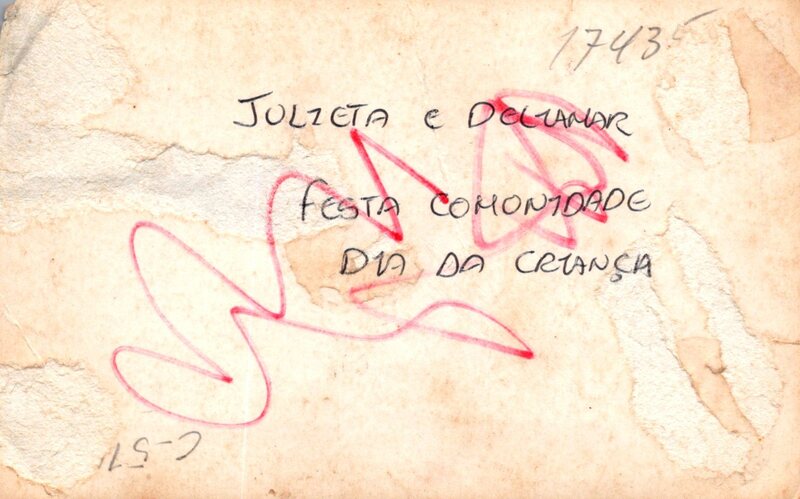 17435
JULIETA E DELIAMAR
FESTA COMONIDADE
DIA DA CRIANÇA